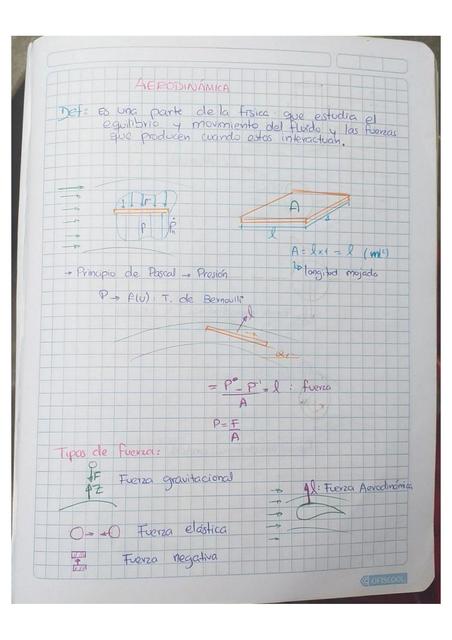 AERODINÁMICA
Def: Es una parte de la física que estudia el
equilibrio y movimiento del fluido y las fuerzas
que producen cuando estos interactúan.
A
1
l
A = l x 1 = l (m²)
↳ longitud mojada
→ Principio de Pascal → Presión
P → f(v): T. de Bernoulli
l
= P⁰ - P¹ = l : fuerza
A
P = F
A
Tipos de fuerza:
F
Z
Fuerza gravitacional
l: Fuerza Aerodinámica
Fuerza elástica
Fuerza negativa
OFISCOOL